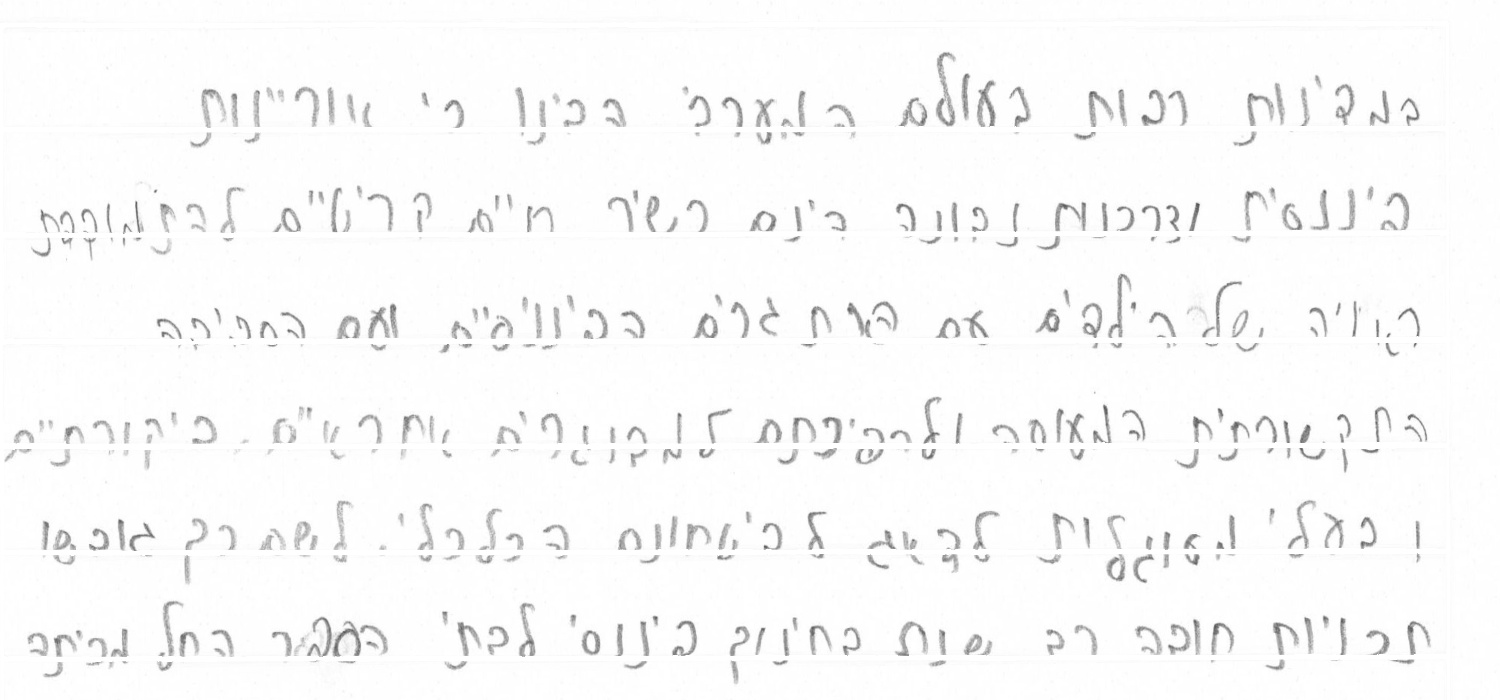 במדינות רבות בעולם המערבי הבינו כי אוריינות
פיננסית וצרכנות נבונה הינם כשיר חיים קריטיים להתמודדת
ראויה של הילדים עם האתגרים הפיננסיים ועם הסביבה
התקשורתית המעוסה ולהפיכתם למבוגרים אחראים. ביקורתיים
ובעלי מסוגלות לדאוג לביטחונם הכלכלי. לשם כך גובשו
תכניות חובה רב שנת בחינוך פיננסי לבתי הספר החל מכיתה